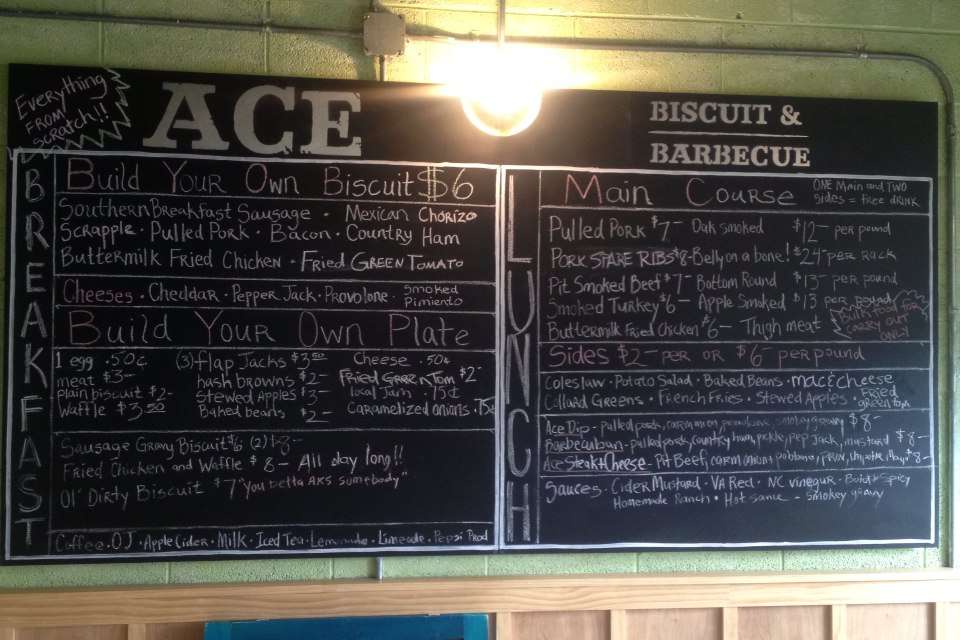 Everything
FROM
SCRATCH!!
ACE
BISCUIT &
BARBECUE
BREAKFAST
Build Your Own Biscuit $6
Southern Breakfast Sausage · Mexican Chorizo
Scrapple · Pulled Pork · Bacon · Country Ham
Buttermilk Fried Chicken · Fried Green Tomato
Cheeses · Cheddar · Pepper Jack · Provolone · Smoked
Pimiento
Build Your Own Plate
1 egg .50¢ (3) flap Jacks $3.50 Cheese .50¢
meat $3- hash browns $2- Fried Green Tom $2-
plain biscuit $2- Stewed Apples $3- local Jam .75¢
Waffle $3.50 Baked beans $2- Caramelized onions .75¢
Sausage Gravy Biscuit $6 (2) $8-
Fried Chicken and Waffle $8- All day long!!
Ol' Dirty Biscuit $7 "You betta AKS Somebody"
Coffee · OJ · Apple Cider · Milk · Iced Tea · Lemonade · Limeade · Pepsi Prod
LUNCH
Main Course ONE Main and TWO
Sides = free DRINK
Pulled Pork $7- Oak smoked $12- per pound
PORK SPARE RIBS $8- Belly on a bone! $24- per rack
Pit Smoked Beef $7- Bottom Round $13- per pound
Smoked Turkey $6- Apple Smoked $13 per pound
Buttermilk Fried Chicken $6- Thigh meat
Bulk food for
CARRY OUT
ONLY!
Sides $2- per or $6- per pound
Coleslaw · Potato Salad · Baked Beans · mac & cheese
Collard Greens · French Fries · Stewed Apples · Fried
green tom
Ace Dip - pulled pork, smokey gravy $8-
Barbecuban - pulled pork, country ham, pickle, pep Jack, mustard $8-
Ace Steak + Cheese - Pit Beef, $8-
Sauces · Cider Mustard · VA Red · NC vinegar · Bold & Spicy
Homemade Ranch · Hot sauce - Smokey gravy